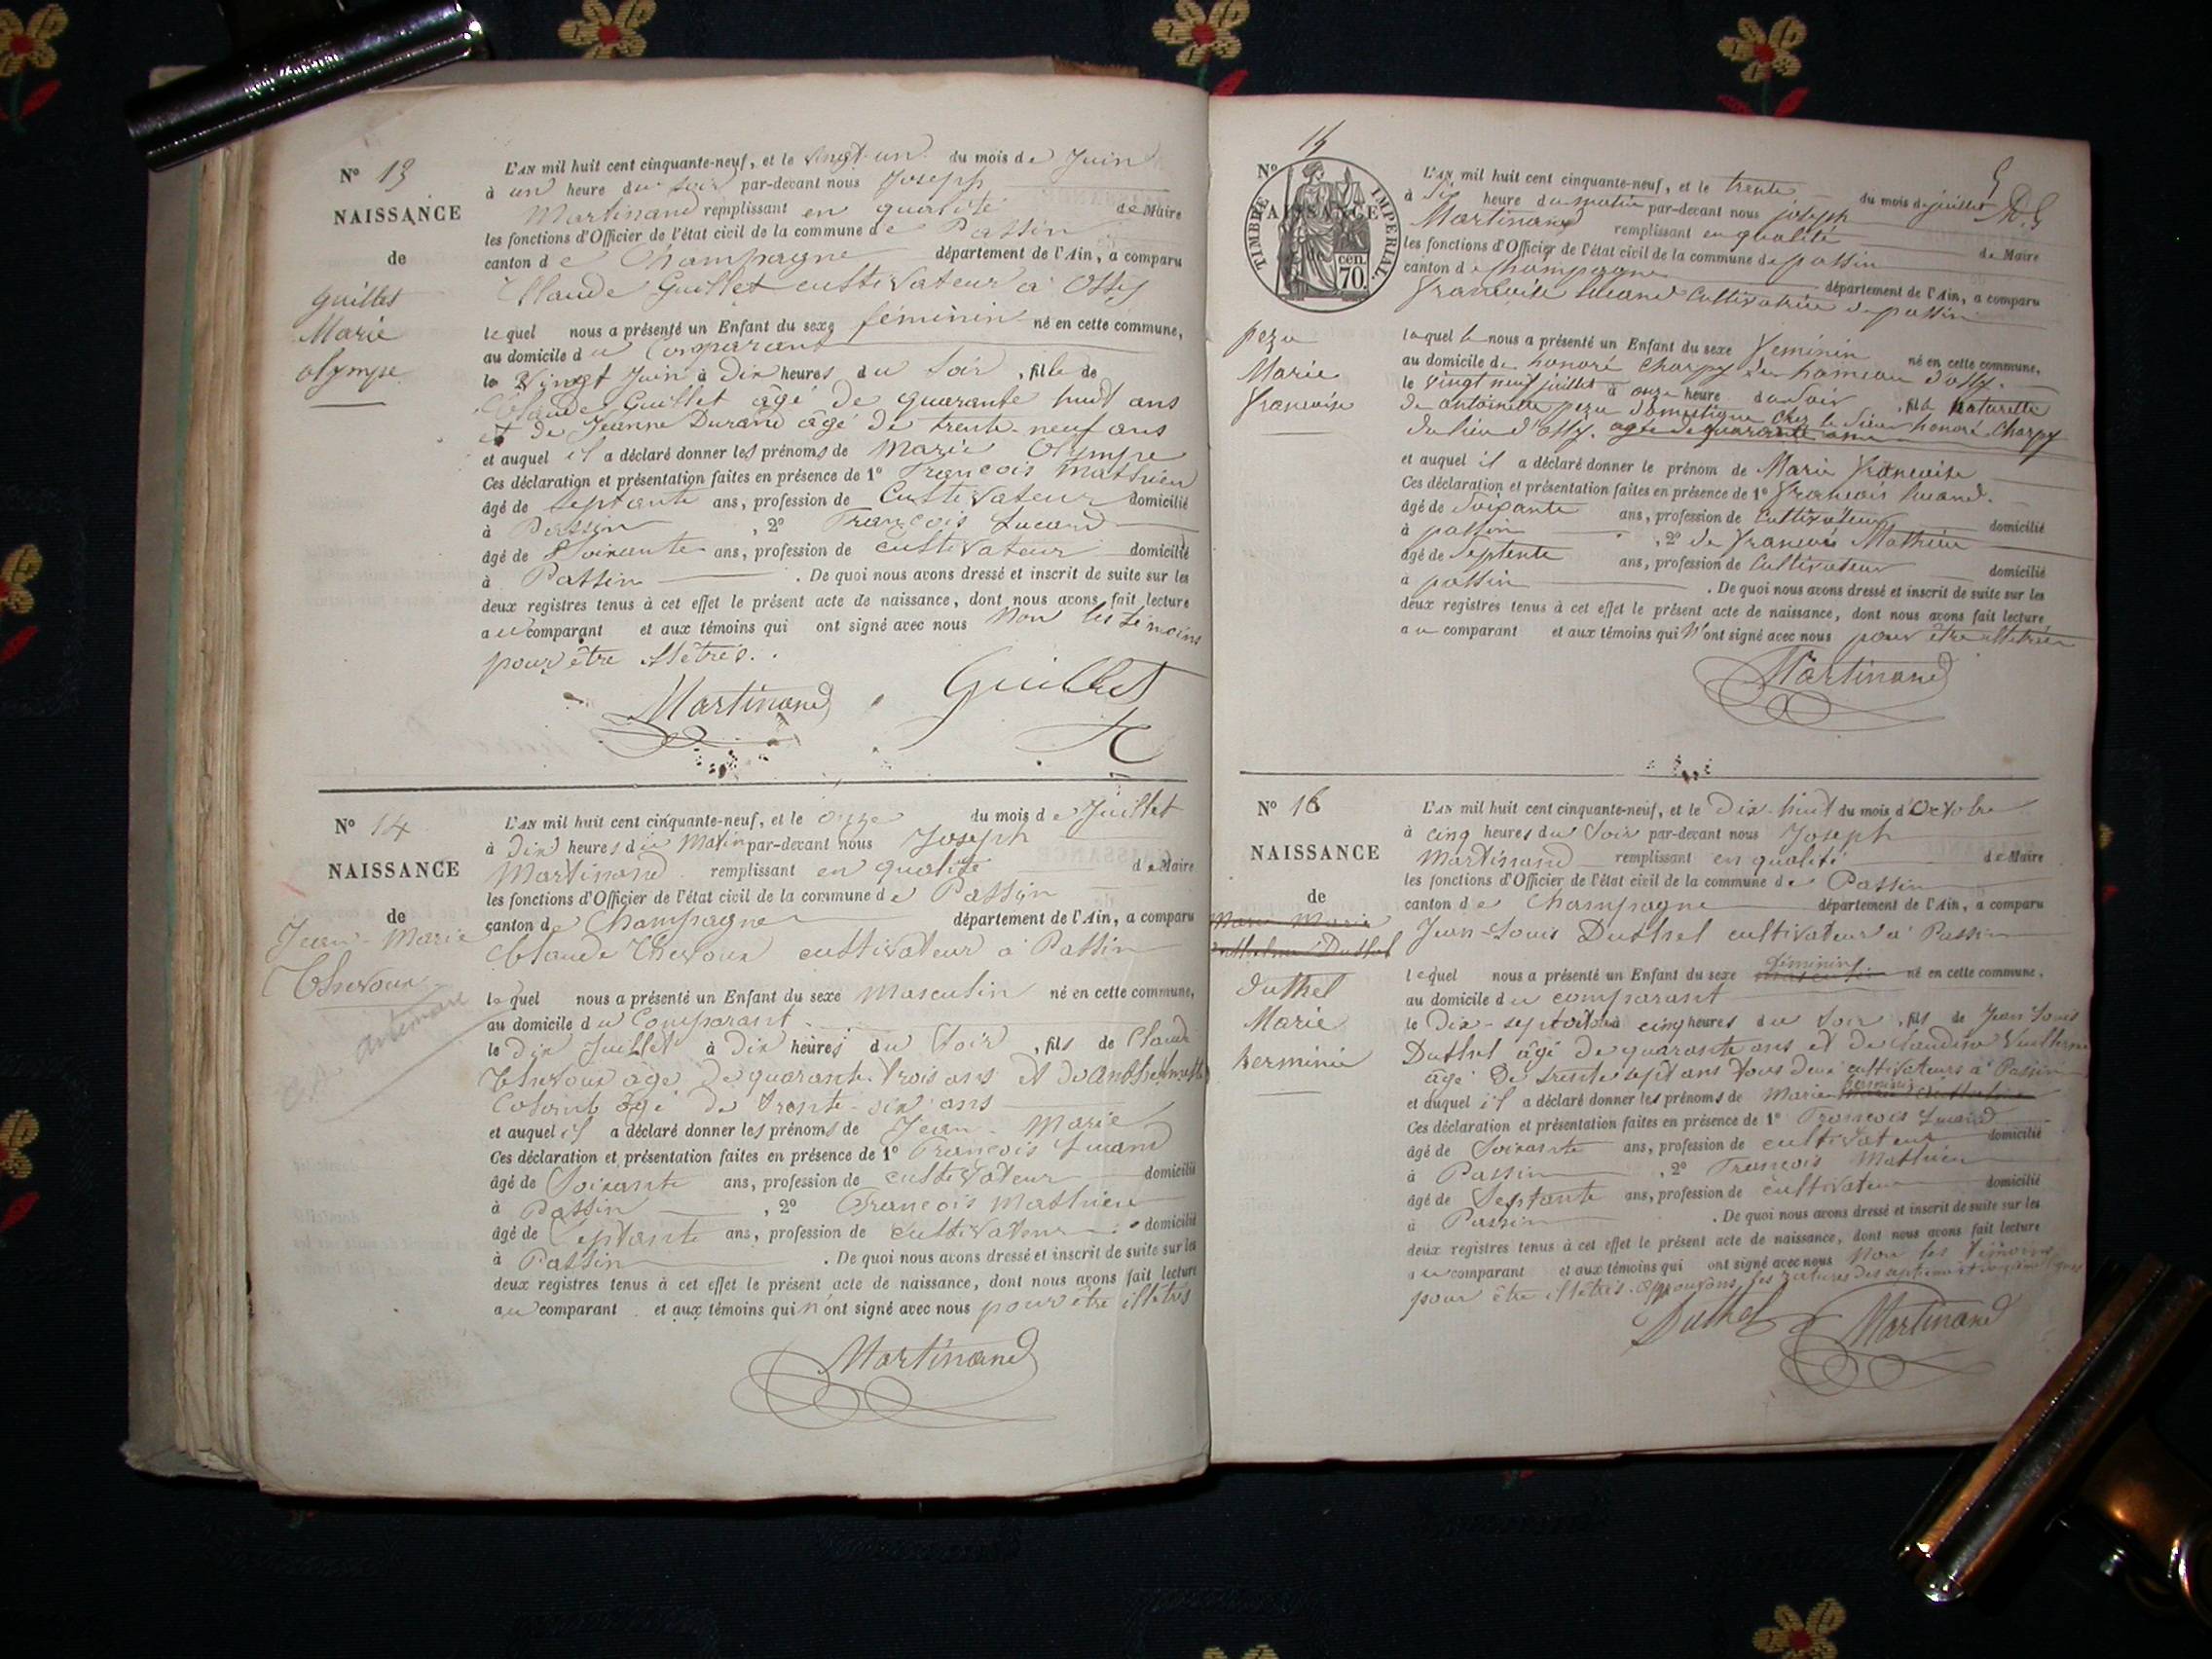 N° 13
NAISSANCE
de
Guillet
Marie
olympe
L'AN mil huit cent cinquante-neuf, et le vingt-un du mois de Juin
à un heure du soir par-devant nous Joseph
Martinand remplissant en qualité de Maire
les fonctions d'Officier de l'état civil de la commune de Passin
canton de Champagne département de l'Ain, a comparu
Claude Guillet cultivateur à Ossy
lequel nous a présenté un Enfant du sexe féminin né en cette commune,
au domicile du Comparant
le Vingt Juin à Dix heures du Soir, fille de
Claude Guillet âgé de quarante huit ans
et de Jeanne Durand âgé de trente-neuf ans
et auquel il a déclaré donner les prénoms de Marie Olympe
Ces déclaration et présentation faites en présence de 1° François Mathieu
âgé de septante ans, profession de Cultivateur domicilié
à Passin, 2° François Lucand
âgé de Soixante ans, profession de cultivateur domicilié
à Passin. De quoi nous avons dressé et inscrit de suite sur les
deux registres tenus à cet effet le présent acte de naissance, dont nous avons fait lecture
au comparant et aux témoins qui ont signé avec nous Non les témoins
pour être illétrés.
Martinand Guillet
N° 14
NAISSANCE
de
Jean-Marie
Thevoux
L'AN mil huit cent cinquante-neuf, et le onze du mois de Juillet
à Dix heures du Matin par-devant nous Joseph
Martinand remplissant en qualité de Maire
les fonctions d'Officier de l'état civil de la commune de Passin
canton de Champagne département de l'Ain, a comparu
Claude Thevoux cultivateur à Passin
lequel nous a présenté un Enfant du sexe Masculin né en cette commune,
au domicile du Comparant
le dix Juillet à Dix heures du Soir, fils de Claude
Thevoux âgé de quarante-trois ans et de
âgé de trente-six ans
et auquel il a déclaré donner les prénoms de Jean-Marie
Ces déclaration et présentation faites en présence de 1° François Lucand
âgé de Soixante ans, profession de cultivateur domicilié
à Passin, 2° François Mathieu
âgé de Septante ans, profession de cultivateur domicilié
à Passin. De quoi nous avons dressé et inscrit de suite sur les
deux registres tenus à cet effet le présent acte de naissance, dont nous avons fait lecture
au comparant et aux témoins qui n'ont signé avec nous pour être illétrés
Martinand
N° 15
NAISSANCE
TIMBRE IMPERIAL.
70. cen.
pezu
Marie
françoise
L'AN mil huit cent cinquante-neuf, et le trente du mois de juillet
à Six heure du matin par-devant nous joseph
Martinand remplissant en qualité de Maire
les fonctions d'Officier de l'état civil de la commune de passin
canton de champagne département de l'Ain, a comparu
françoise Lucand Cultivatrice de passin
laquel le nous a présenté un Enfant du sexe feminin né en cette commune,
au domicile de honoré Charpy du hameau d'ossy.
le vingt neuf juillet à onze heure du soir, fille naturelle
de antoinette pezu domestique chez le Sieur honoré Charpy
du lieu d'ossy. agée de quarante ans
et auquel il a déclaré donner le prénom de Marie françoise
Ces déclaration et présentation faites en présence de 1° françois Lucand.
âgé de Soixante ans, profession de Cultivateur domicilié
à passin, 2° de françois Mathieu
âgé de Septente ans, profession de Cultivateur domicilié
à passin. De quoi nous avons dressé et inscrit de suite sur les
deux registres tenus à cet effet le présent acte de naissance, dont nous avons fait lecture
au comparant et aux témoins qui n'ont signé avec nous pour être
Martinand
N° 16
NAISSANCE
de
Duthel
Marie
herminie
L'AN mil huit cent cinquante-neuf, et le Dix-huit du mois d'Octobre
à cinq heures du Soir par-devant nous Joseph
Martinand remplissant en qualité de Maire
les fonctions d'Officier de l'état civil de la commune de Passin
canton de Champagne département de l'Ain, a comparu
Jean-Louis Duthel cultivateur à Passin
lequel nous a présenté un Enfant du sexe féminin né en cette commune,
au domicile du comparant
le Dix-sept à cinq heures du Soir, fils de Jean Louis
Duthel âgé de quarante ans et de Claudine
âgé de trente sept ans tous deux cultivateurs à Passin
et auquel il a déclaré donner les prénoms de Marie herminie
Ces déclaration et présentation faites en présence de 1° François Lucand
âgé de Soixante ans, profession de cultivateur domicilié
à Passin, 2° François Mathieu
âgé de Septante ans, profession de cultivateur domicilié
à Passin. De quoi nous avons dressé et inscrit de suite sur les
deux registres tenus à cet effet le présent acte de naissance, dont nous avons fait lecture
au comparant et aux témoins qui ont signé avec nous Non les témoins
pour être illétrés. approuvons les ratures
Duthel Martinand